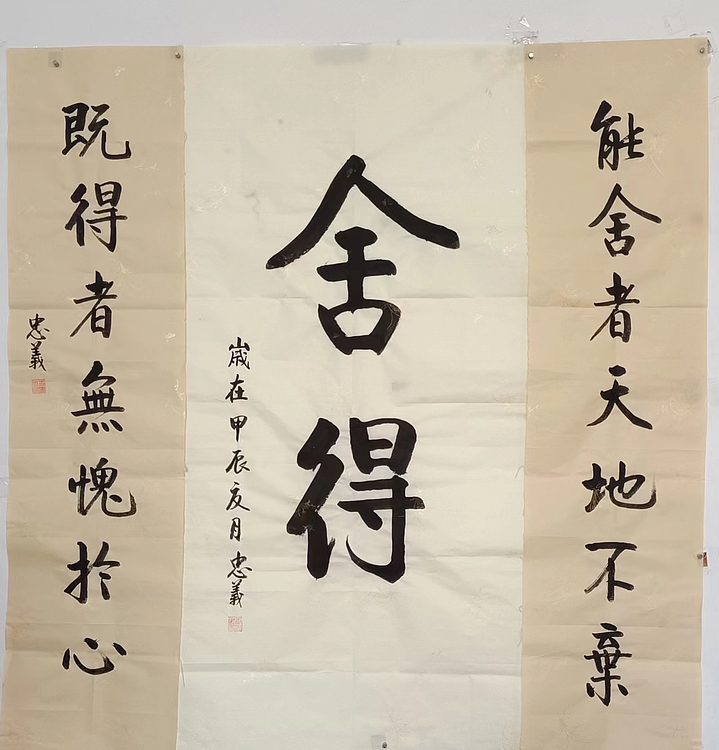 能舍者天地不棄
舍得
歲在甲辰夏月 忠義
既得者無愧於心
忠義